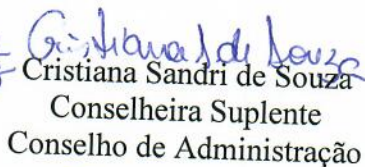 Cristiana S de Souza
Cristiana Sandri de Souza
Conselheira Suplente
Conselho de Administração